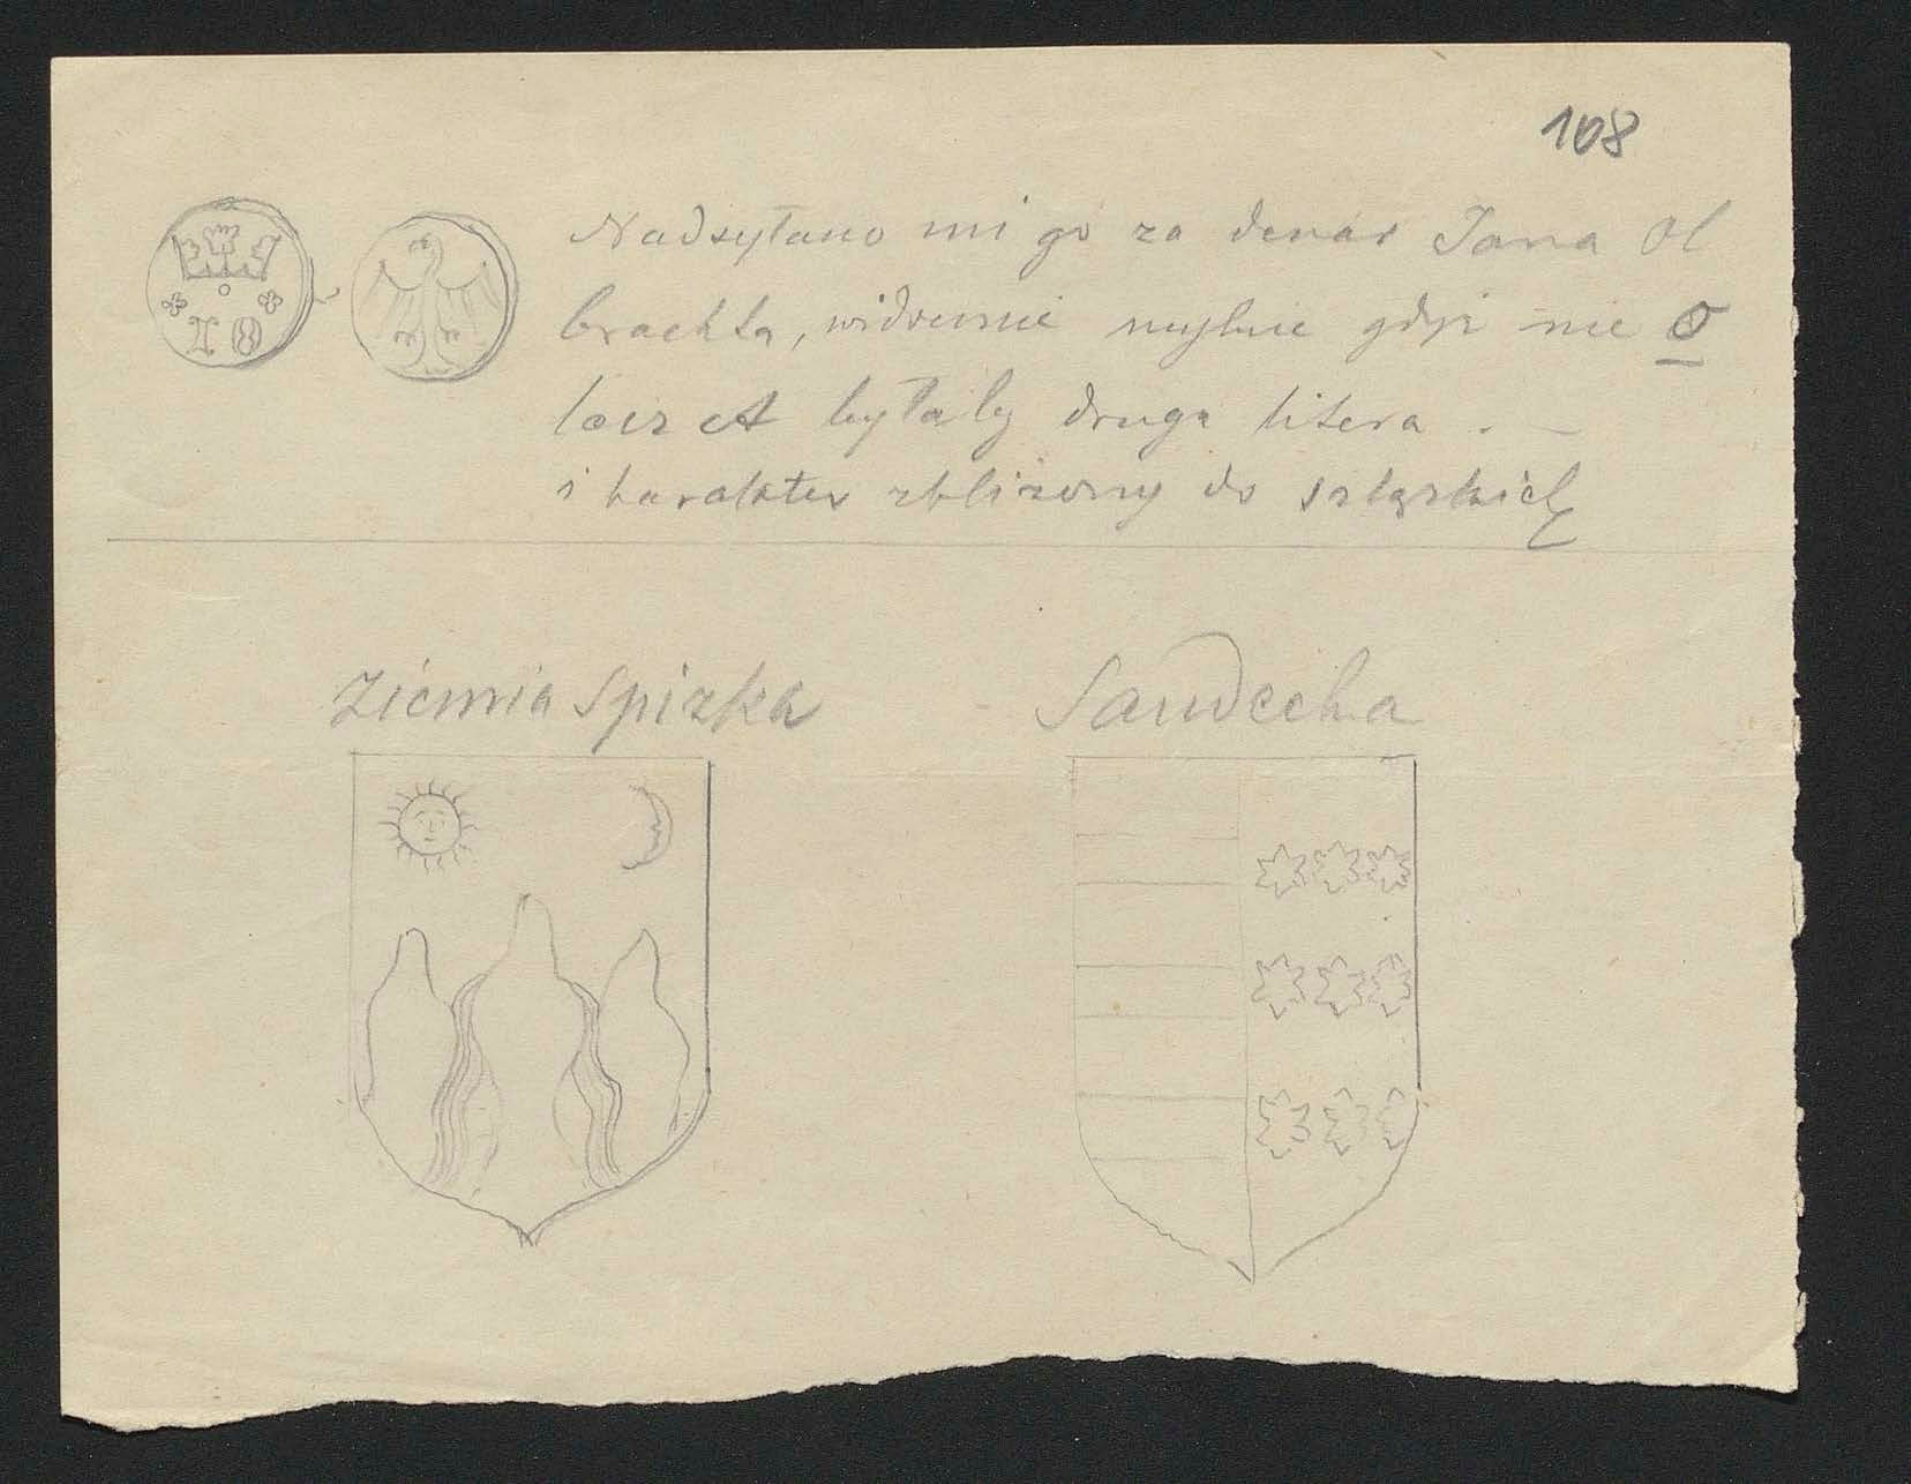 108
Nadsyłano mi go za denar Jana Ol
brachta, widocznie mylnie gdyż nie O
lecz A byłaby druga litera . —
i harakter zbliżony do szląskich
I O
Ziemia Spizka
Sandecka